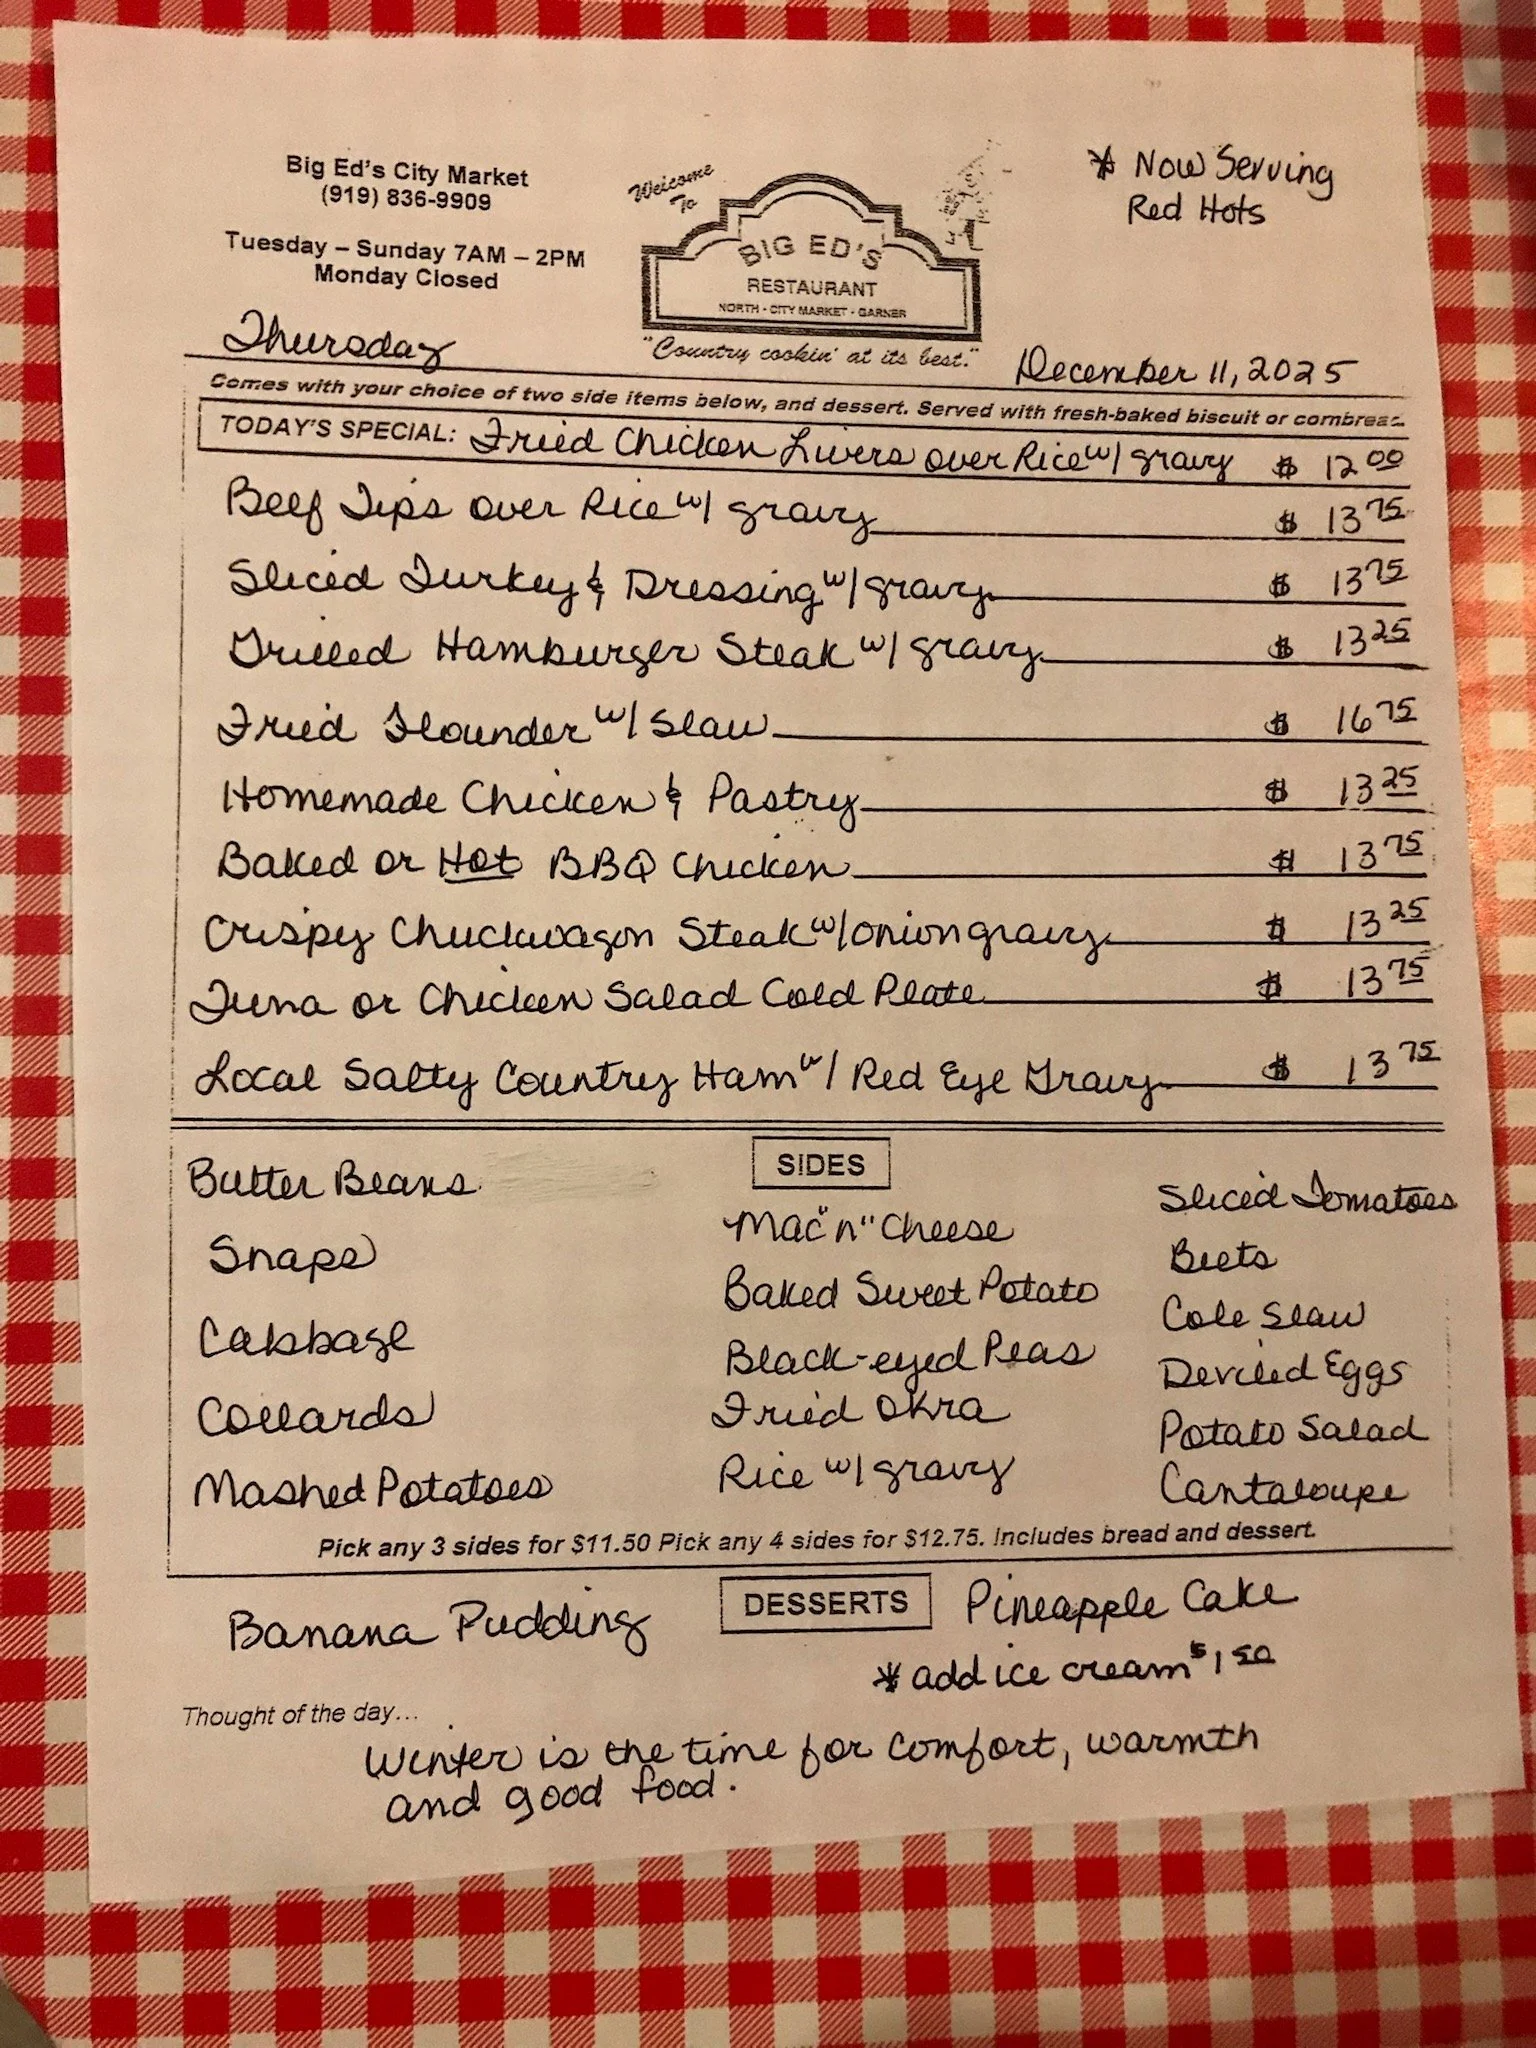 Big Ed's City Market
(919) 836-9909
Tuesday – Sunday 7AM – 2PM
Monday Closed
Welcome
To
BIG ED'S
RESTAURANT
NORTH - CITY MARKET - GARNER
"Country cookin' at its best."
* Now Serving
Red Hots
Thursday
December 11, 2025
Comes with your choice of two side items below, and dessert. Served with fresh-baked biscuit or cornbread.
TODAY'S SPECIAL: Fried Chicken Livers over Rice w/ gravy $ 12 00
Beef Tips over Rice w/ gravy $ 13 75
Sliced Turkey & Dressing w/ gravy $ 13 75
Grilled Hamburger Steak w/ gravy $ 13 25
Fried Flounder w/ Slaw $ 16 75
Homemade Chicken & Pastry $ 13 25
Baked or Hot BBQ Chicken $ 13 75
Crispy Chuckwagon Steak w/ onion gravy $ 13 25
Tuna or Chicken Salad Cold Plate $ 13 75
Local Salty Country Ham w/ Red Eye Gravy $ 13 75
SIDES
Butter Beans
Snaps
Cabbage
Collards
Mashed Potatoes
Mac "n" Cheese
Baked Sweet Potato
Black-eyed Peas
Fried Okra
Rice w/ gravy
Sliced Tomatoes
Beets
Cole Slaw
Deviled Eggs
Potato Salad
Cantaloupe
Pick any 3 sides for $11.50 Pick any 4 sides for $12.75. Includes bread and dessert.
DESSERTS
Banana Pudding
Pineapple Cake
* add ice cream $1 50
Thought of the day...
Winter is the time for comfort, warmth
and good food.